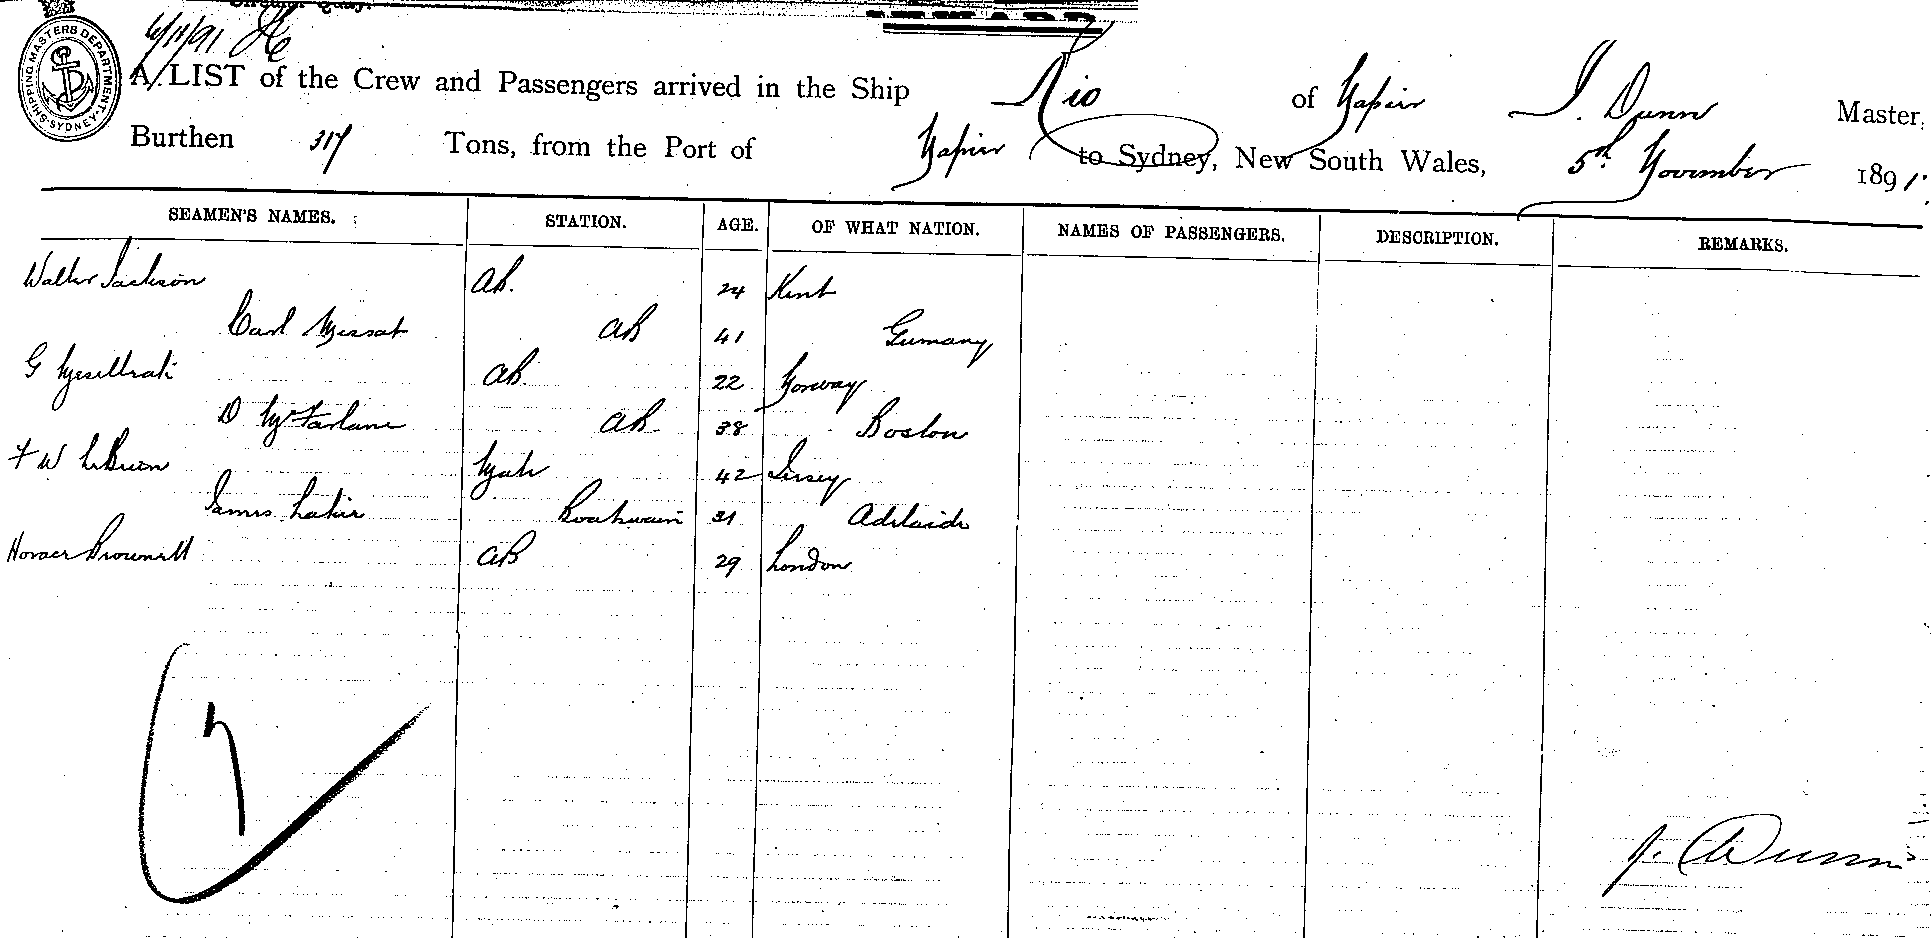 SHIPPING MASTERS DEPARTMENT. SYDNEY.
6/11/91
A LIST of the Crew and Passengers arrived in the Ship Rio of Napier J. Dunn Master,
Burthen 317 Tons, from the Port of Napier to Sydney, New South Wales, 5th November 1891.
SEAMEN'S NAMES. STATION. AGE. OF WHAT NATION. NAMES OF PASSENGERS. DESCRIPTION. REMARKS.
Walter Jackson AB. 24 Kent
Carl AB 41 Germany
G AB. 22 Norway
D McFarlane AB 38 Boston
F W LeBrun Mate 42 Jersey
James Boatswain 31 Adelaide
Horace Brownett AB 29 London
7
J. Dunn